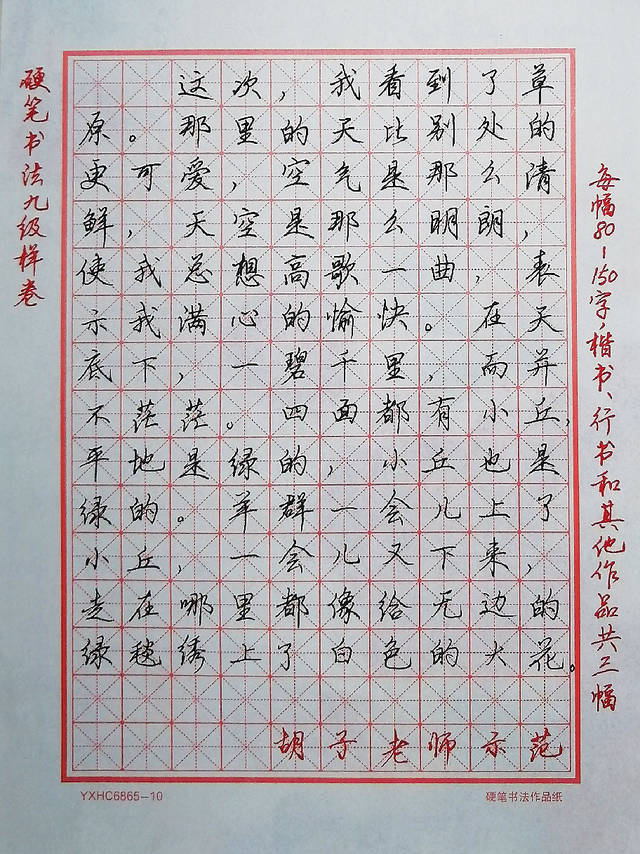 硬笔书法九级样卷
这次，我看到了草
原。那里的天比别处的
更可爱，空气是那么清
鲜，天空是那么明朗，
使我总想高歌一曲，表
示我满心的愉快。在天
底下，一碧千里，而并
不茫茫。四面都有小丘，
平地是绿的，小丘也是
绿的。羊群一会儿上了
小丘，一会儿又下来，
走在哪里都像给无边的
绿毯绣上了白色的大花。
胡子老师示范
每幅80-150字，楷书、行书和其他作品共三幅
YXHC6865-10
硬笔书法作品纸